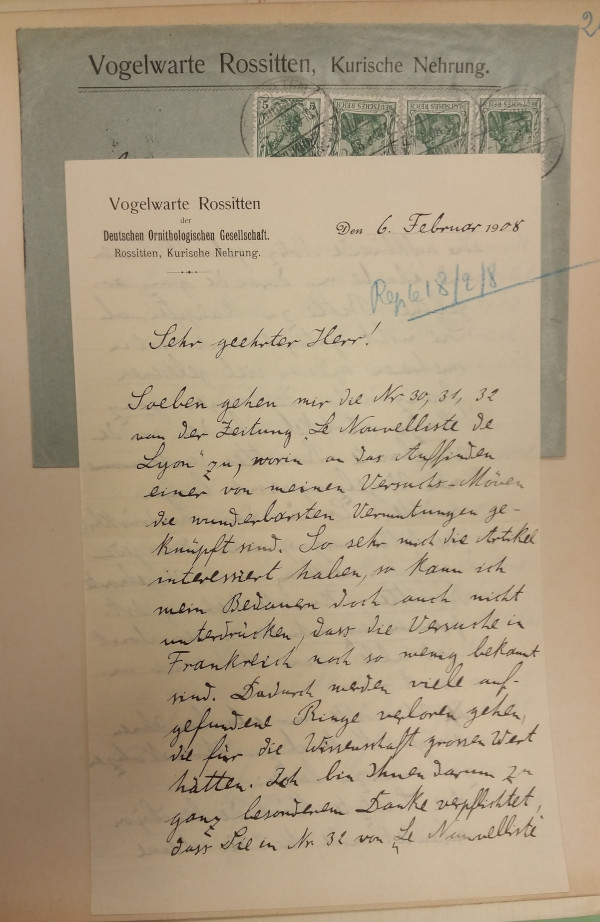 2
Vogelwarte Rossitten, Kurische Nehrung.
5 5
DEUTSCHES REICH
DEUTSCHES REICH
DEUTSCHES REICH
Vogelwarte Rossitten
der
Deutschen Ornithologischen Gesellschaft.
Rossitten, Kurische Nehrung.
Den 6. Februar 1908
18/2/8
Sehr geehrter Herr!
Soeben gehen mir die Nr 30, 31, 32
von der Zeitung „Le Nouvelliste de
Lyon" zu, worin an das Auffinden
einer von meinen Versuchs-Möven
die wunderbarsten Vermutungen ge-
knüpft sind. So sehr mich die Artikel
interessiert haben, so kann ich
mein Bedauern doch auch nicht
unterdrücken, dass die Versuche in
Frankreich noch so wenig bekannt
sind. Dadurch werden viele auf-
gefundene Ringe verloren gehen,
die für die Wissenschaft grossen Wert
hätten. Ich bin Ihnen darum zu
ganz besonderem Danke verpflichtet,
dass Sie in Nr. 32 von „Le Nouvelliste